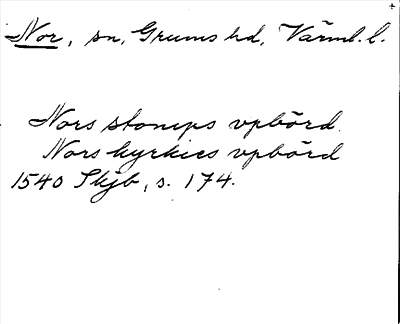 Nor, sn, Grums hd, Värml. l.
Nors stomps vpbörd
Nors kyrkies vpbörd
1540 Skjb, s. 174.